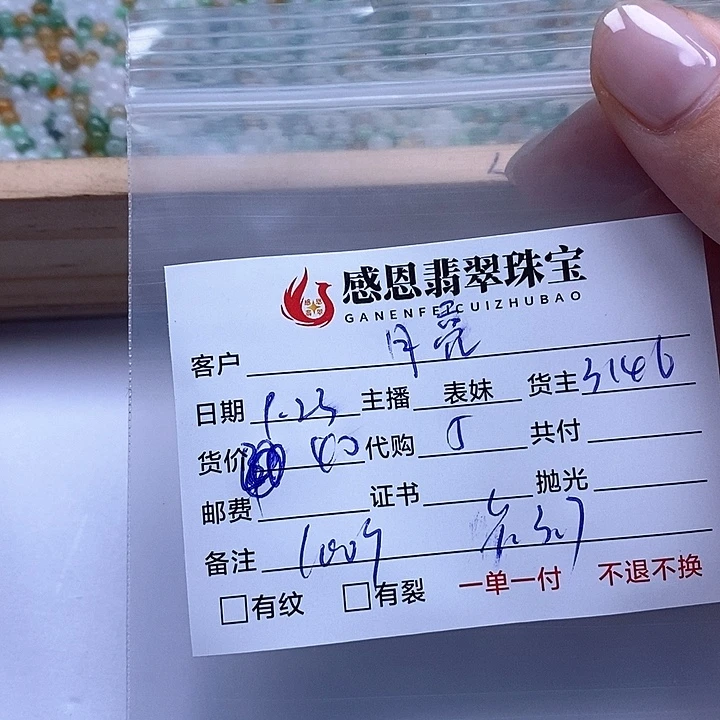 感恩翡翠珠宝
GANENFEICUIZHUBAO
客户 月亮
日期 1.23 主播 表妹 货主 3146
货价 80 代购 5 共付
邮费 证书 抛光
备注
有纹 有裂 一单一付 不退不换